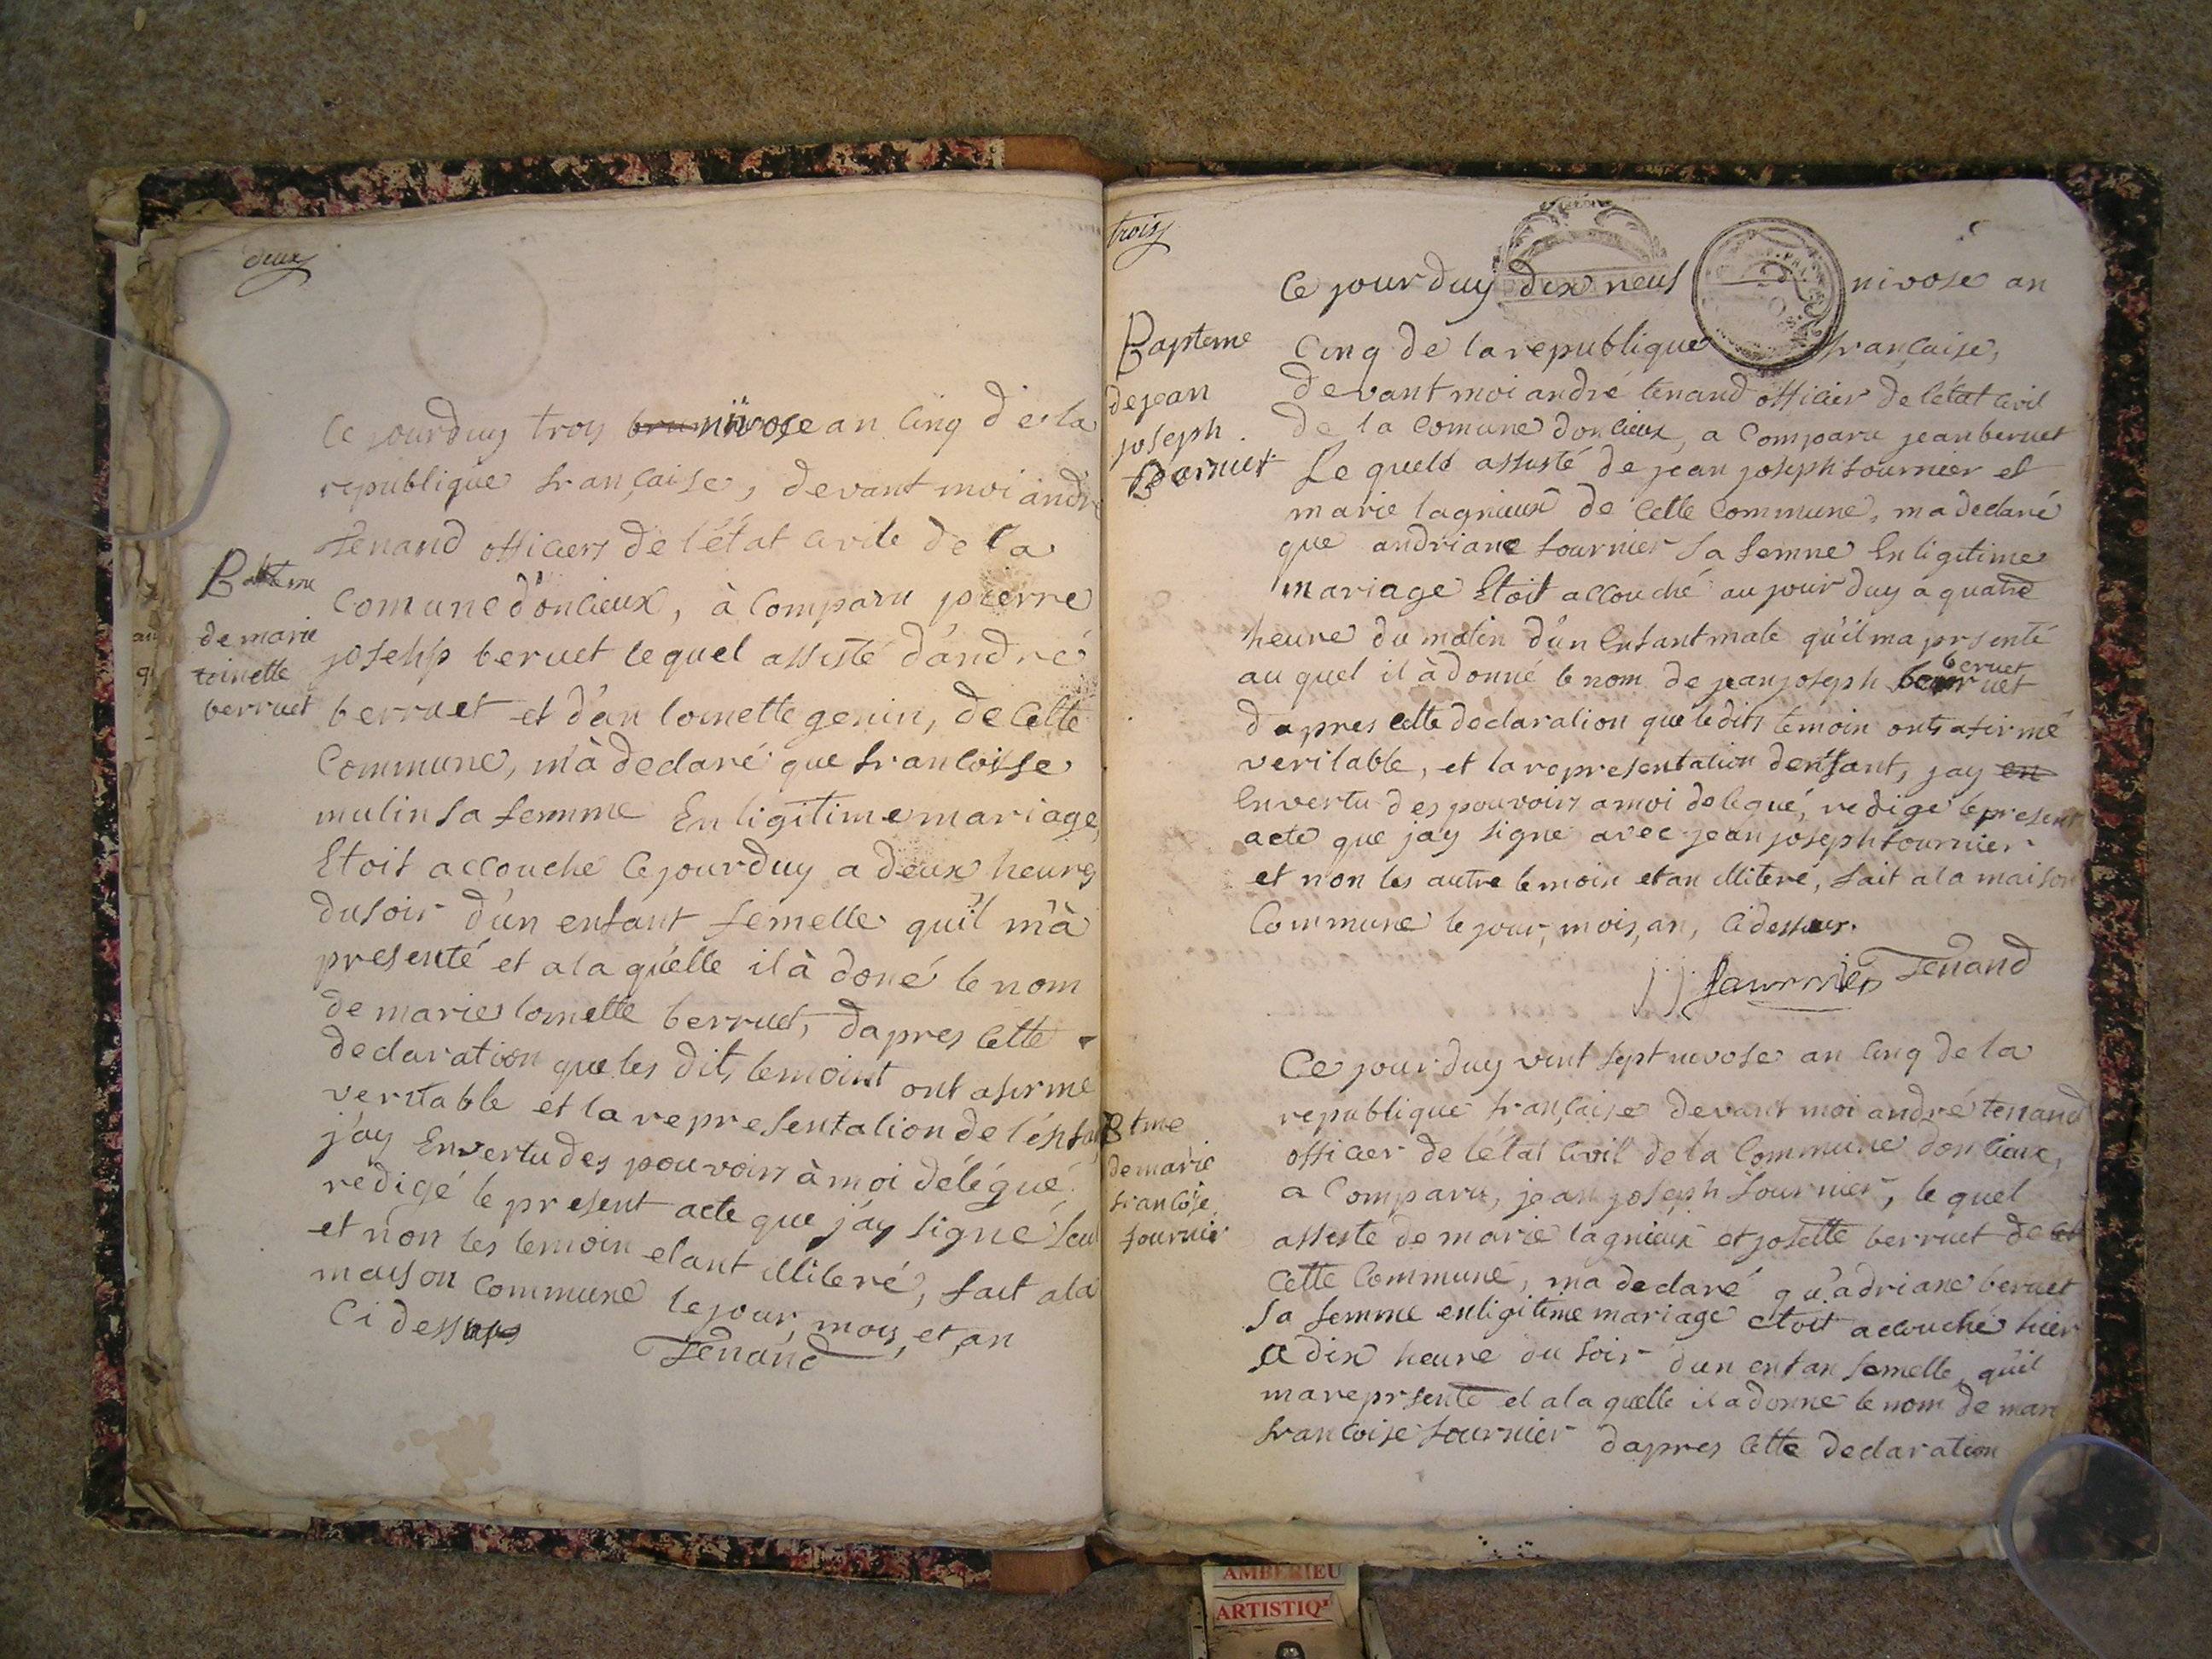 deux
Ce jourduy troy brumnivose an cinq de la
republique française, devant moi andré
tenand officiers de l'état civile de la
comune d'oncieux, à comparu pierre
josehp beruet lequel assisté d'andré
berruet et d'an toinette genin, de cette
commune, m'à declaré que francoisse
mulin sa femme En ligitime mariage,
Etoit accouche ce jourduy a deux heures
du soir d'un enfant femelle qu'il m'à
presenté et a la qu'elle il à doné le nom
de marie toinette berruet, dapres cette
declaration que les dit, temoint ont afirmé
veritable et la representation de l'enfan
j'ay En vertu des pouvoirs à moi délégué
rédigé le present acte que j'ay signé seul
et non les temoin etant illiteré, fait a la
maison commune le jour, mois, et, an
Ci dessus
Tenand
Bateme
de marie
toinette
berruet
trois
Ce jourduy dix neuf nivose an
Cinq de la republique française,
devant moi andré tenand officier de l'état civil
de la comune doncieux, a comparu jean beruet
Le quel assisté de jean joseph fournier et
marie lagnieux de cette commune, ma declaré
que andriane fournier sa femne En ligitime
mariage Etoit accouché aujour duy a quatre
heure du matin d'un Enfant male qu'il ma prsenté
au quel il à donné le nom de jean joseph beruet
dapres cette declaration que ledits temoin onts afirmé
veritable, et la representation denffant, jay en
En vertu des pouvoirs a moi delegué, redigé le present
acte que jay signe avec jean joseph fournier
et non les autre temoin etan illiteré, fait a la maison
Commune le jour, mois, an, Ci dessus.
j j fournier Tenand
Bapteme
de jean
joseph
Beruet
Ce jourduy vint sept nivose an cinq de la
republique française devant moi andré tenand
officier de l'état civil de la commune doncieux,
a comparu, jean joseph fournier, le quel
assisté de marie lagnieux et josette berruet de cet
cette commune, ma declaré qu'adriane beruet
sa femme en ligitime mariage etoit accouché hier
a dix heure du soir dun enfan femelle, qu'il
ma reprsenté et a la quelle il a donne le nom de mari
francoise fournier dapres cette declaration
Btme
de marie
francoise
fournier
AMBERIEU
ARTISTIQ